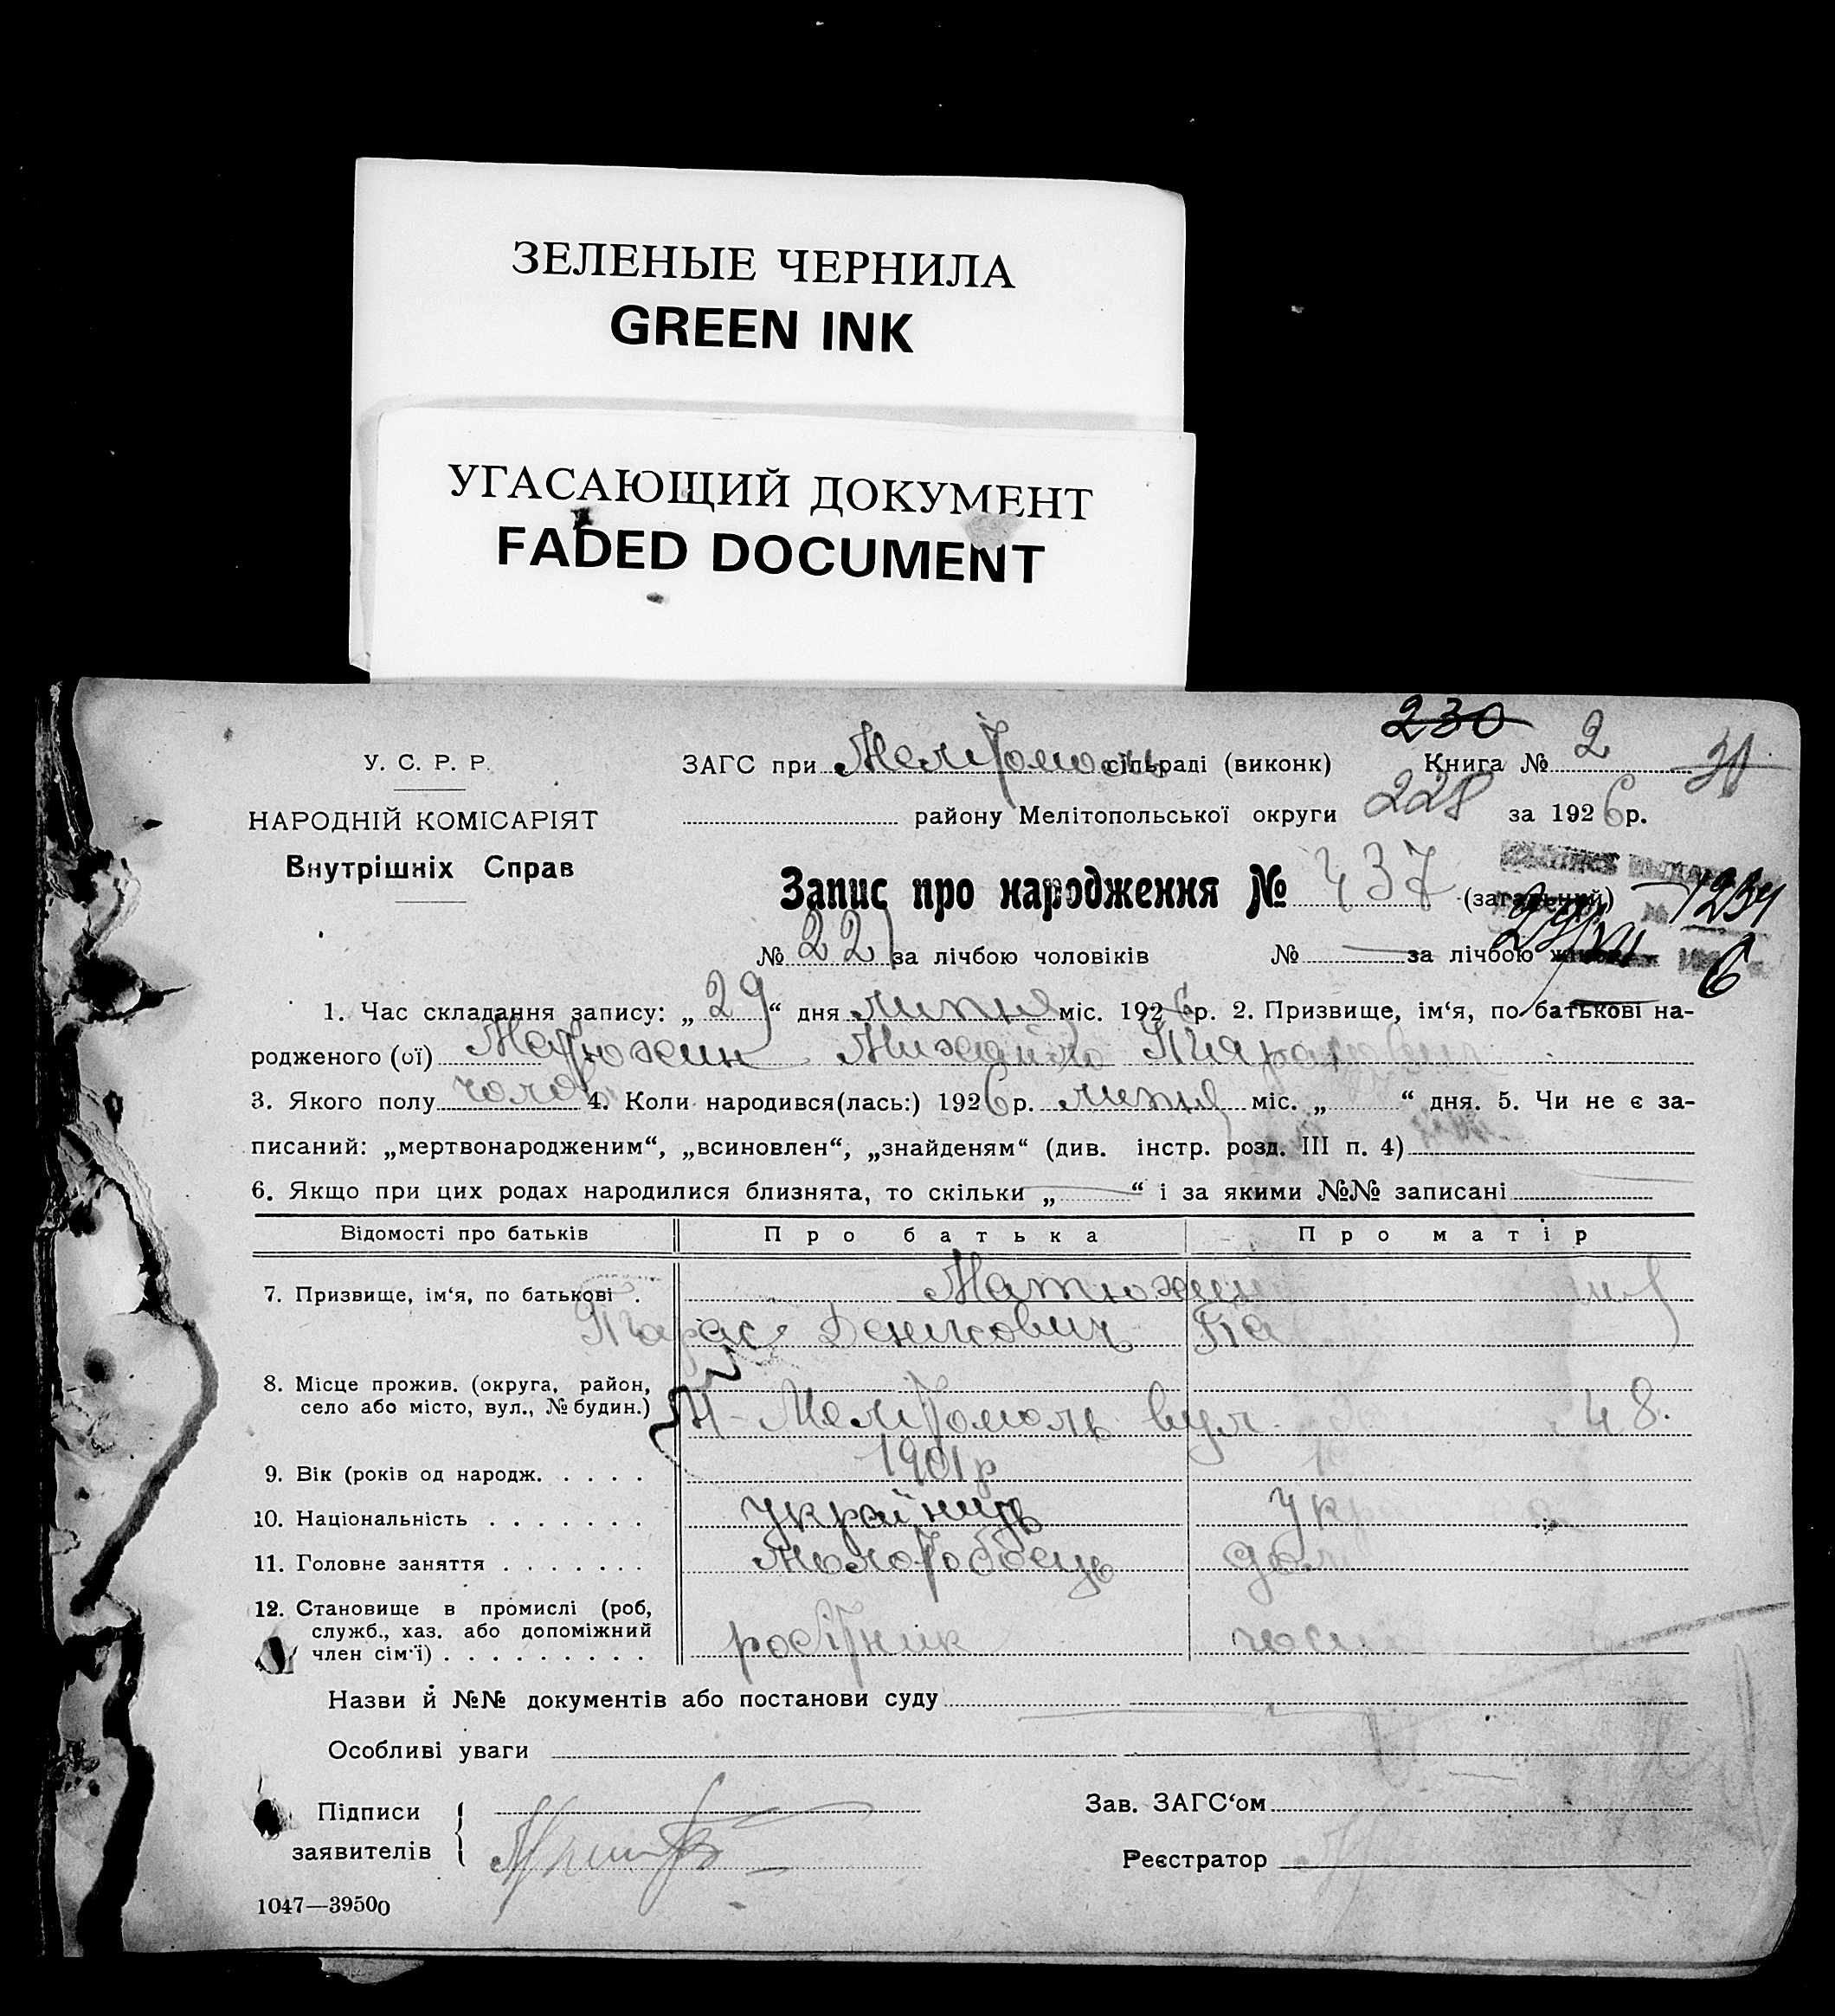 ЗЕЛЕНЫЕ ЧЕРНИЛА
GREEN INK
УГАСАЮЩИЙ ДОКУМЕНТ
FADED DOCUMENT
230
У. С. Р. Р.
ЗАГС при Мелітополь сільраді (виконк) Книга № 2
31
району Мелітопольської округи 228 за 1926 р.
НАРОДНІЙ КОМІСАРІЯТ
Внутрішніх Справ
Запис про народження № 437 (загальний)
1234
№ 221 за лічбою чоловіків № — за лічбою
6
1. Час складання запису: „29“ дня липня міс. 1926 р. 2. Призвище, ім‘я, по батькові на-
родженого (ої) Матюхин Михайло
3. Якого полу чолов 4. Коли народився(лась:) 1926 р. липня міс. „ “ дня. 5. Чи не є за-
писаний: „мертвонародженим“, „всиновлен“, „знайденям“ (див. інстр. розд. III п. 4)
6. Якщо при цих родах народилися близнята, то скільки „—“ і за якими №№ записані
Відомості про батьків Про батька Про матір
7. Призвище, ім‘я, по батькові . Матюхин
Тарас Денисович
8. Місце прожив. (округа, район,
село або місто, вул., № будин.) м Мелітополь вул. 48.
9. Вік (років од народж. . . . . 1901 р
10. Національність . . . . . . . українець Укр
11. Головне заняття . . . . . . . дом
12. Становище в промислі (роб,
служб., хаз. або допоміжний
член сім‘ї) . . . . . . . . . робітник
Назви й №№ документів або постанови суду
Особливі уваги
Підписи
заявителів
Зав. ЗАГС‘ом
Реєстратор
1047—39500